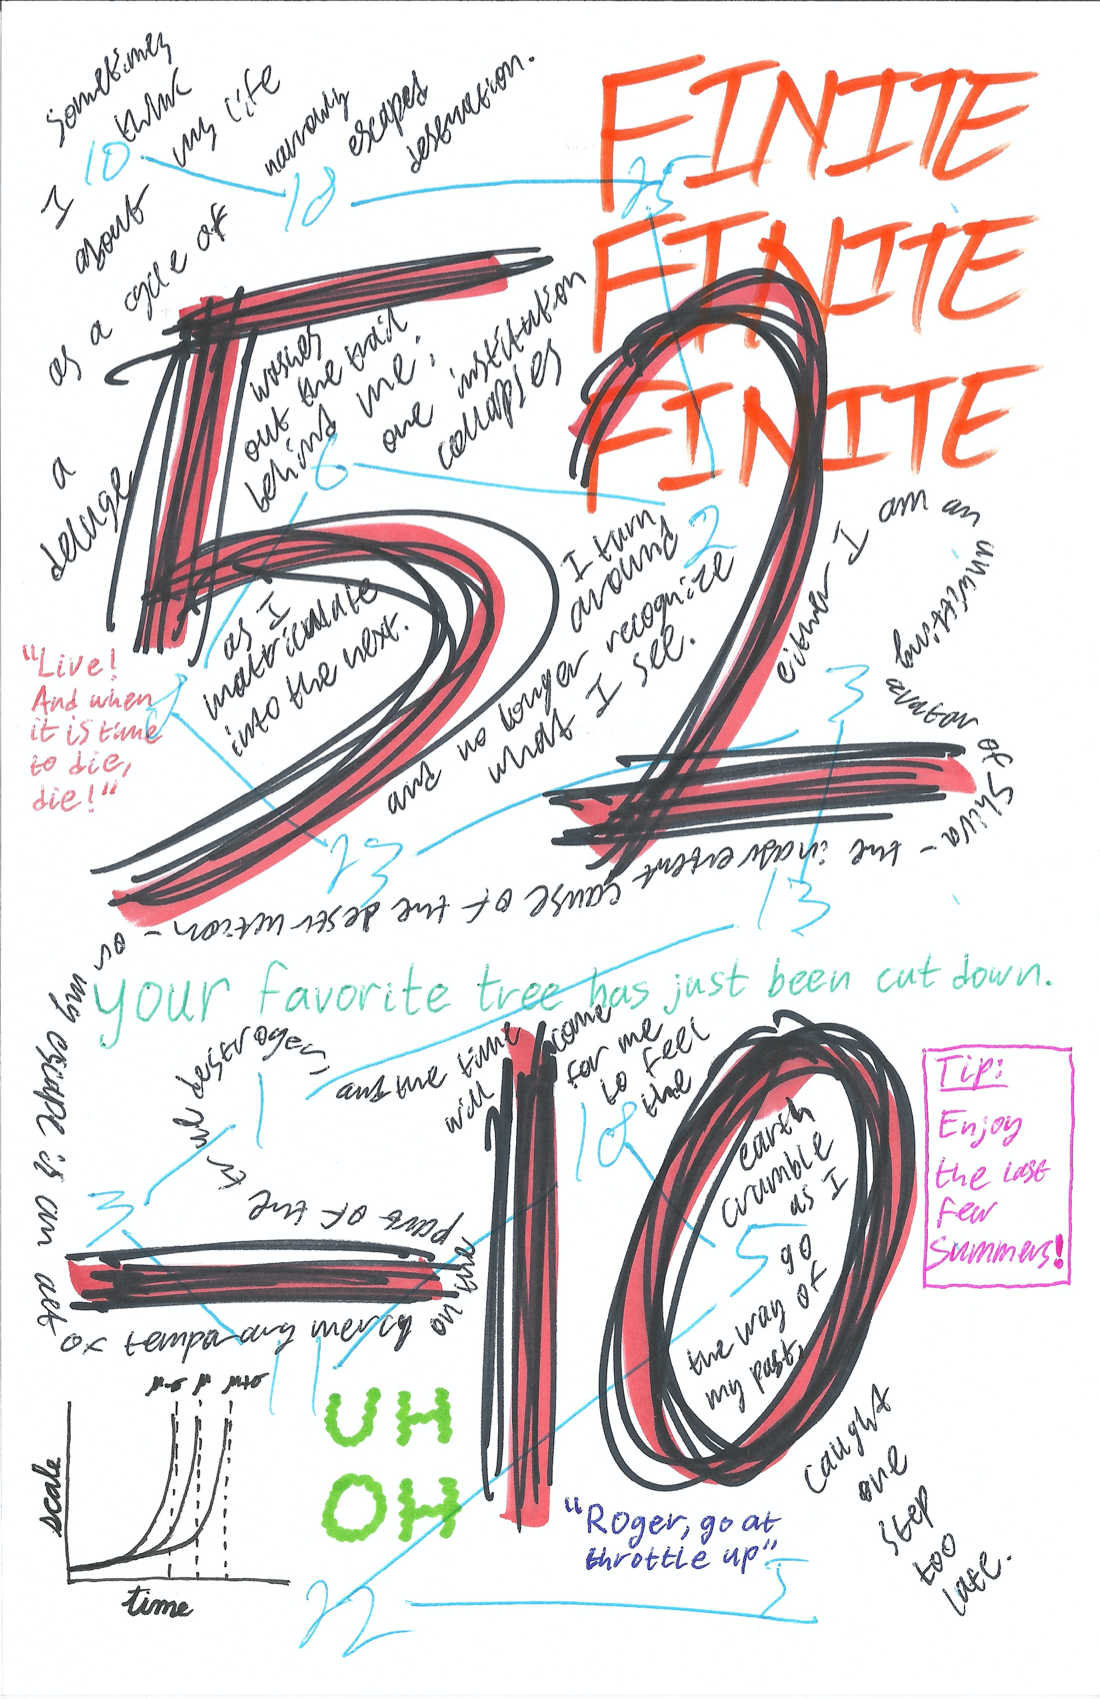 sometimes
I think
about my life
as a cycle of
narrowly
escaped
desernation.
a
deluge
washes
out the trail
behind me;
one institution
collapses
as I
matriculate
into the next.
I turn
around
and no longer recognize
what I see.
either I am an
unwitting
avatar of Shiva
– the inadvertent cause of the destruction – or
my escape is an act
of temporary mercy
on the
part of the
true destroyer;
and the time
will come
for me
to feel
the
earth
crumble
as I
go
the way of
my past,
caught
one
step
too
late.
FINITE
FINITE
FINITE
52
-10
10
18
25
2
6
8
23
3
13
1
3
11
18
5
22
5
"Live!
And when
it is time
to die,
die!"
your favorite tree has just been cut down.
Tip:
Enjoy
the last
few
summers!
UH
OH
"Roger, go at
throttle up"
μ-σ μ μ+σ
scale
time